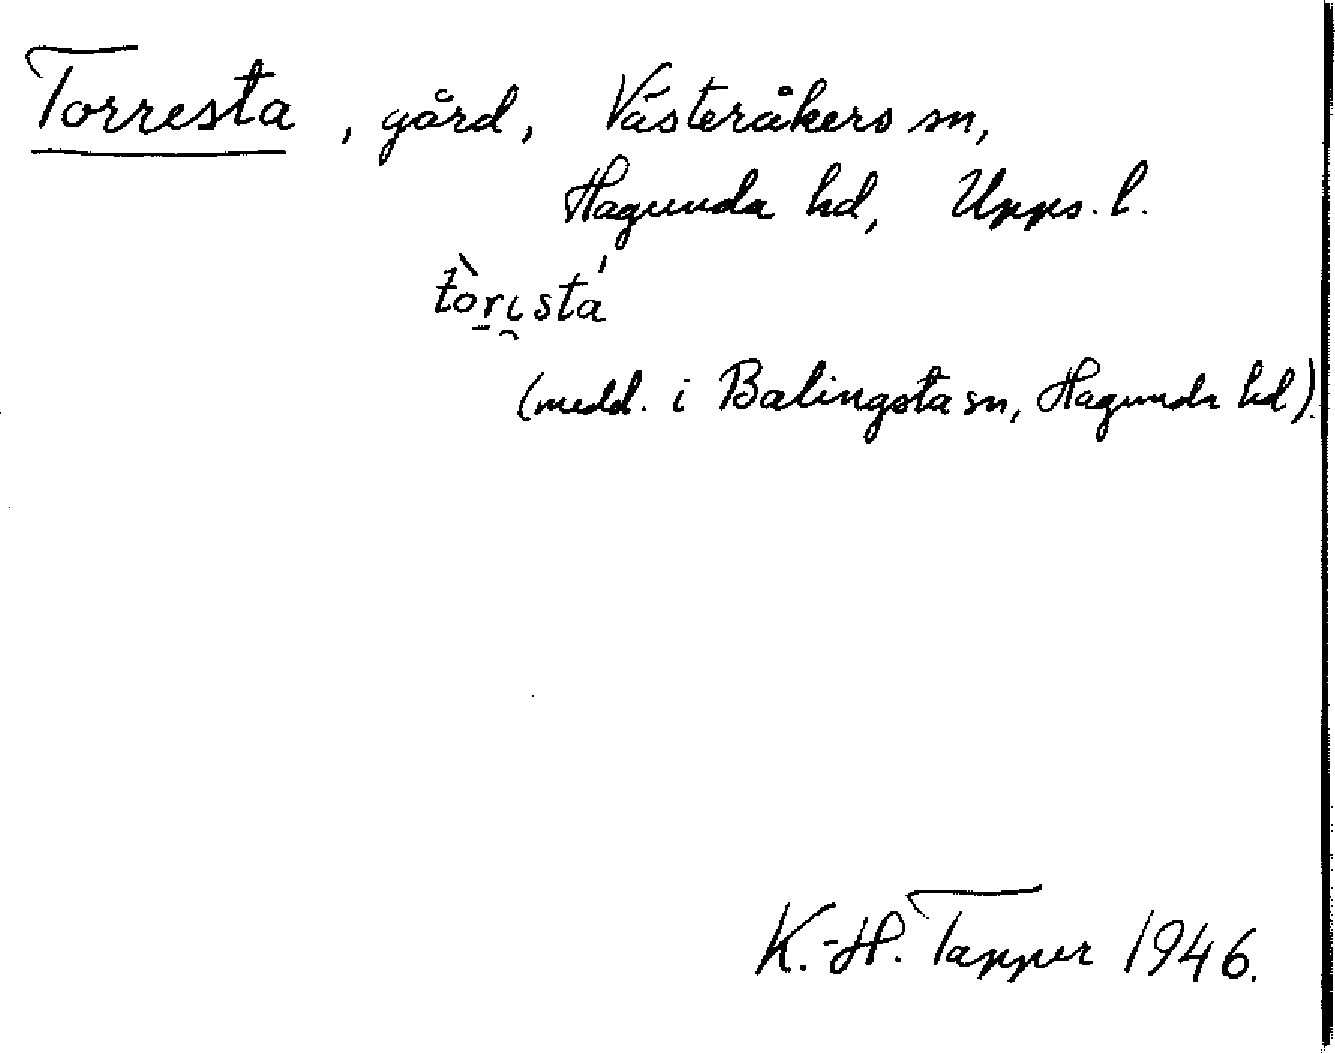 Torresta, gård, Västeråkers sn,
Hagunda hd, Upps. l.
tòr̠ı̯stá
(medd. i Balingsta sn, Hagunda hd).
K.-H. Tapper 1946.